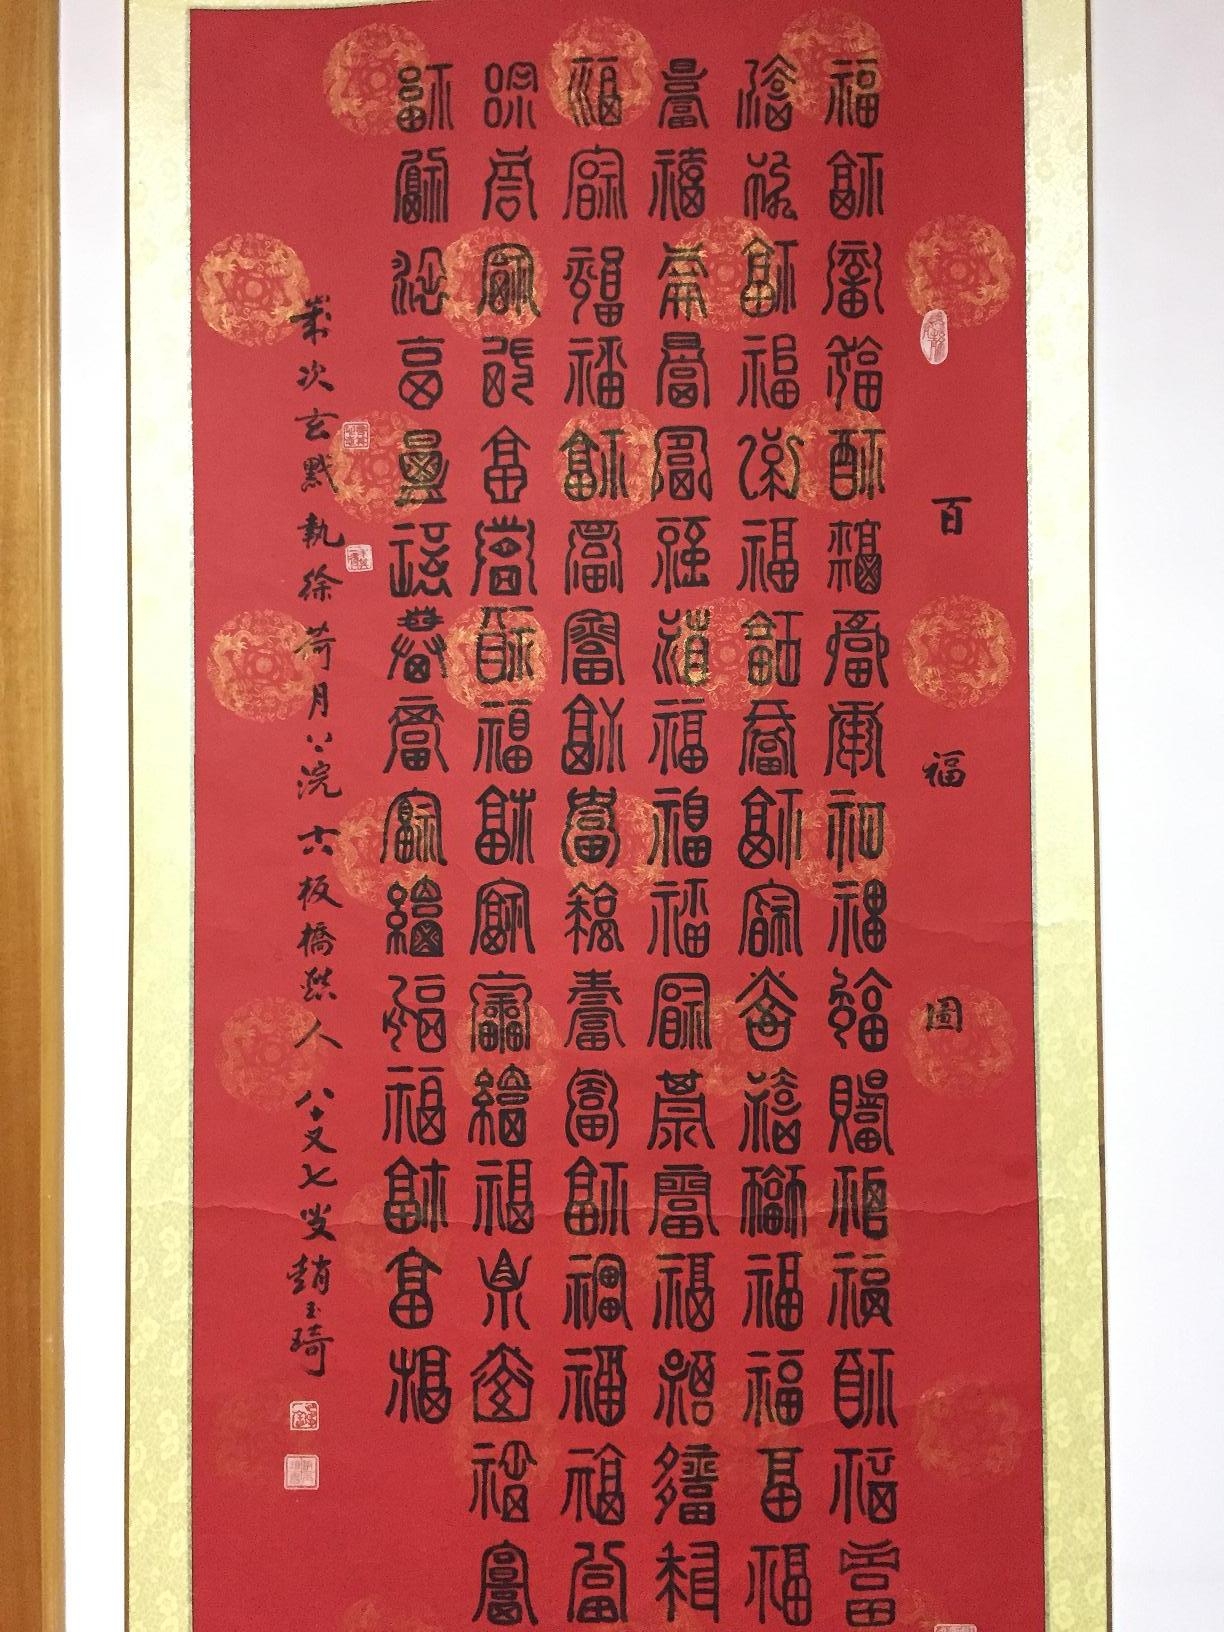 百福圖
福福福福福福福福福福福福福福福福福
福福福福福福福福福福福福福福福福福
福福福福福福福福福福福福福福福福福
福福福福福福福福福福福福福福福福福
福福福福福福福福福福福福福福福福福
福福福福福福福福福福福福福福福
歲次玄黓執徐荷月浣板橋人八十又七叟趙玉琦